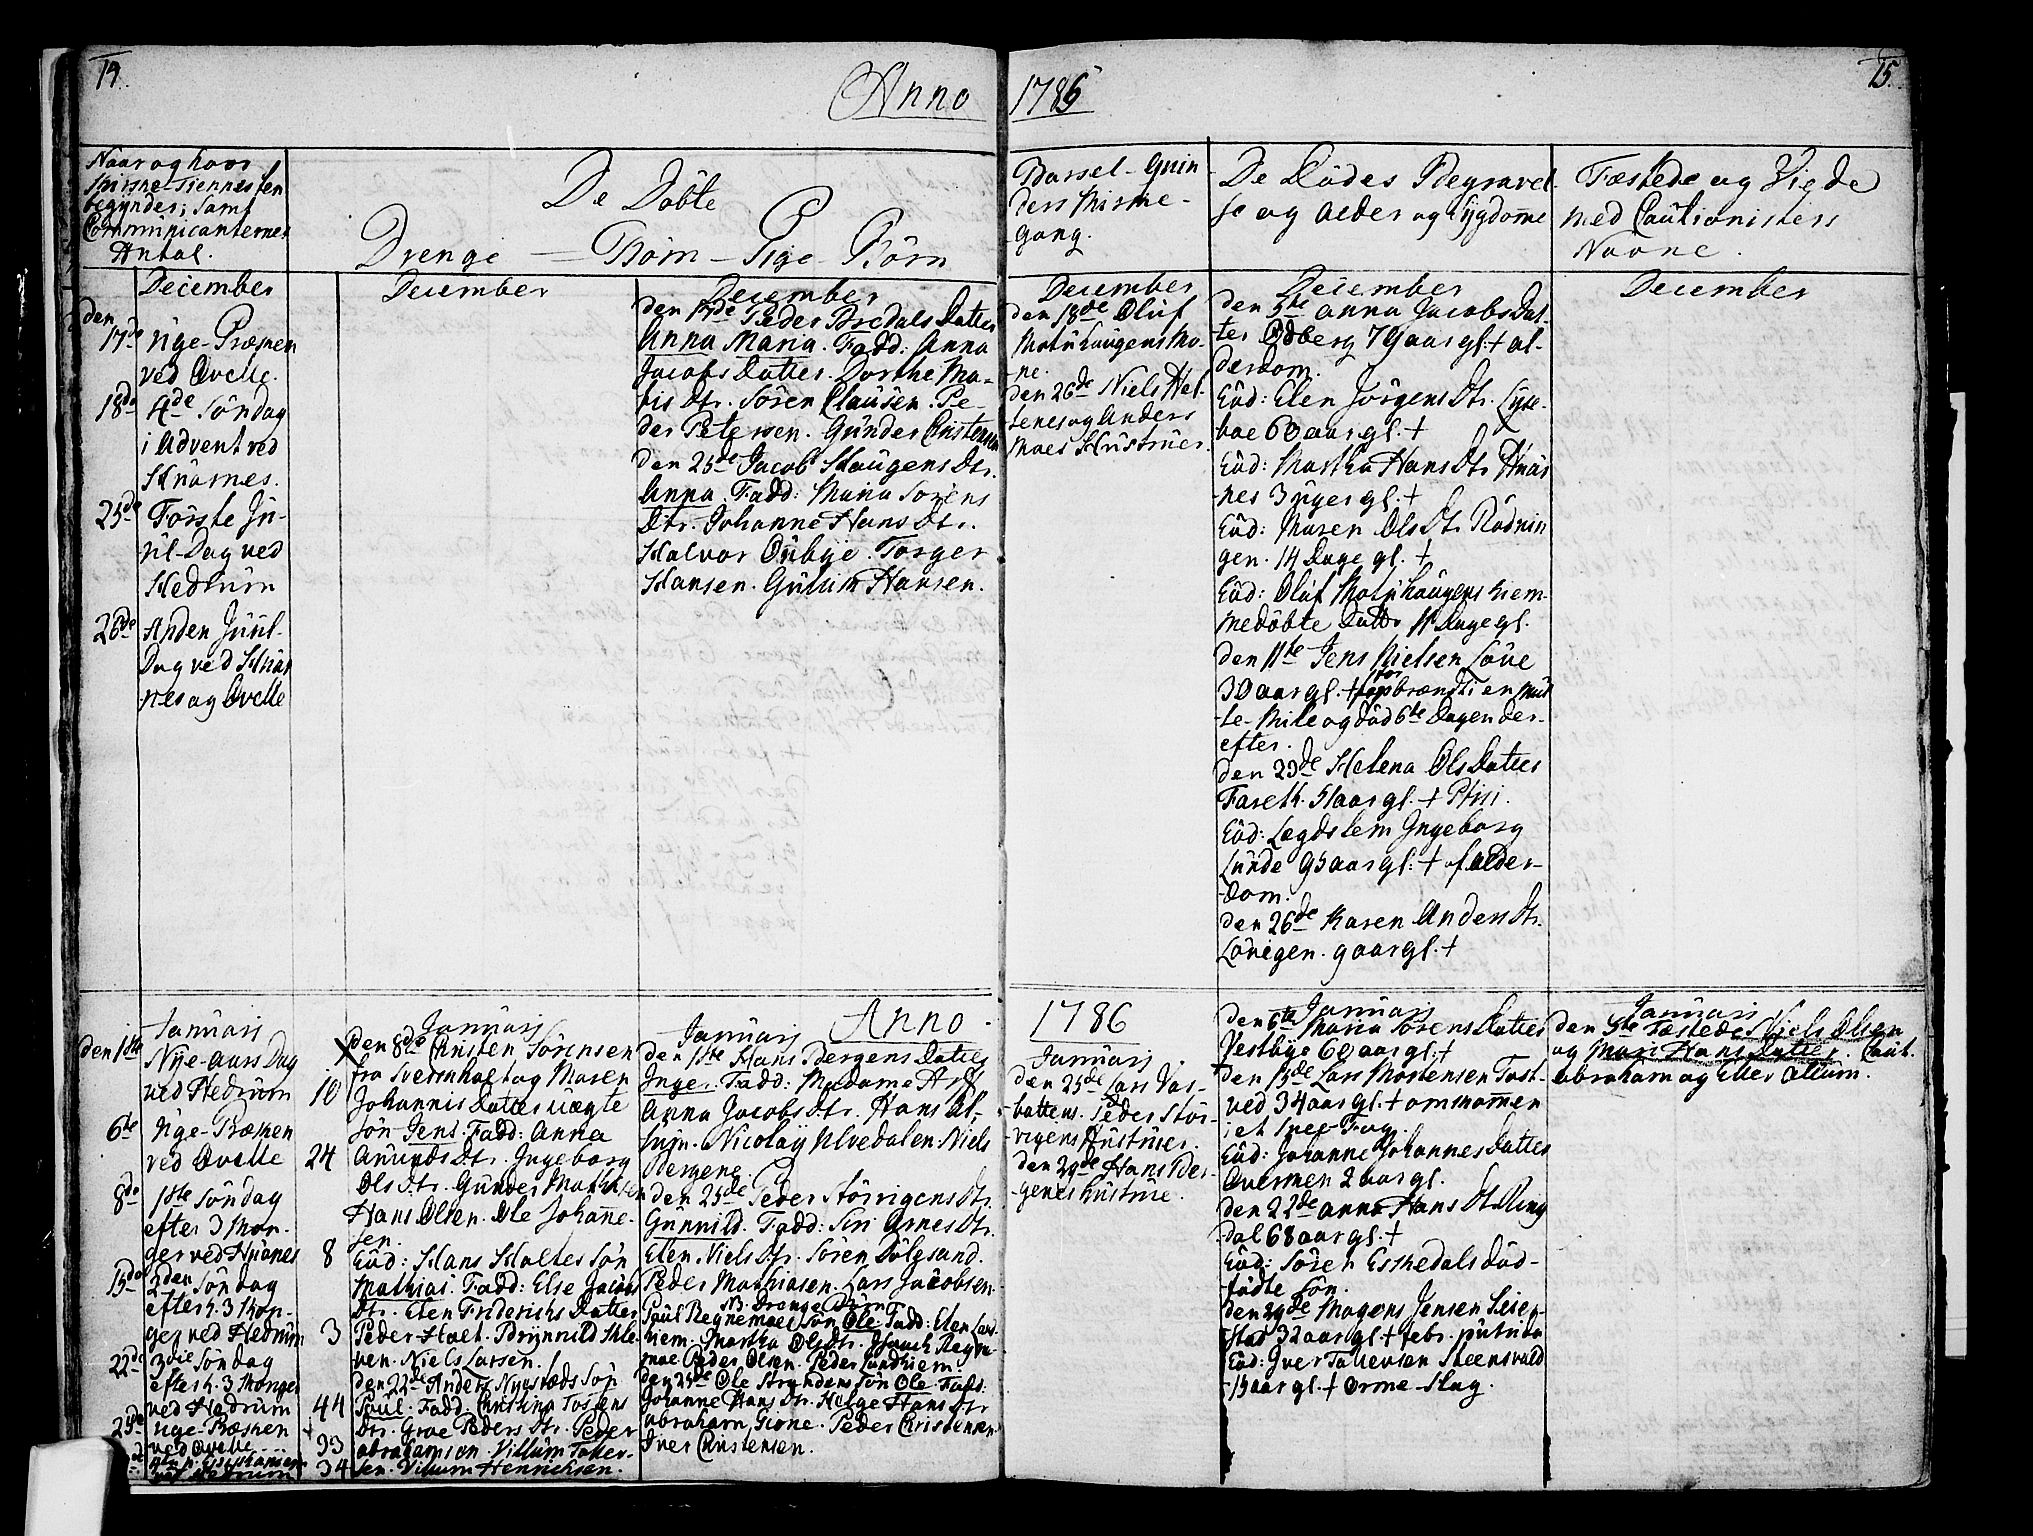 14.
Anno
1785
15.
Naar og hvor
Kirke-Tiennesten
begyndes; samt
Communicanternes
Antal.
De Döbte
Drenge = Börn - Pige - Börn
Barsel-Quin
ders Kirke-
gang.
De Dödes Begravel-
se og Alder og Sygdomme
Fæstede og Viede
med Cautionisters
Navne.
December
den
17de Uge-Præken
ved Qvelle.
18de 4de Söndag
i Advent ved
Hvarnes.
25de Förste Ju-
ul-Dag ved
Hedrum
26de Anden Juul-
Dag ved Hvar
nes og Qvelle
December
December
den 17de Peder Bredals Datter
Anna Maria. Fadd: Anna
Jacobs Datter. Dorthe Ma-
this Dtr. Sören Clausen. Pe-
der Petersen. Gunder Cristensen
den 25de Jacob Haugens Dtr.
Anna. Fadd: Maria Sörens
Dtr. Johanne Hans Dtr.
Halvor Oubÿe. Torger
Hansen. Gulich Hansen.
December
den 18de Oluf
Mokuhaugens Ko-
ne.
den 26de Niels Hel-
tenes og Anders
Moes Hustruer.
December
den 5te Anna Jacobs Dat-
ter Odberg 79 aar gl. + al-
derdom.
Eod: Elen Jörgens Dtr. Lyse-
boe 60 aar gl. +
Eod: Martha Hans Dtr Hvar
nes 3 uger gl. +
Eod: Maren Ols Dtr Rödnin
gen. 14 Dage gl. +
Eod: Oluf Mokuhaugens hiem-
medöbte Datter 11 Dage gl.
den 11te Jens Nielsen Löve
30 aar gl. + forbrændt i en Kul
te-Mile og död 6te Dagen der-
efter.
den 23de Helena Ols Datter
Fareth. 51 aar gl. + Phtisi.
Eod: Lægdslem Ingeborg
Lunde 95 aar gl. + af alder-
dom.
den 26de Karen Anders Dtr.
Lövigen. 9 aar gl. +
December
Januarj
den 1ste Nye-aars Dag
ved Hedrum 10
6te Uge-Præken
ved Qvelle 24
8de 1ste Söndag
efter 3 Kon-
ger ved Hvarnes 8
15de 2den Söndag
efter h. 3 Kon-
ger ved Hedrum 3
22de 3die Söndag
efter h. 3 Konger
ved Hedrum 44
25de Uge-Præken
ved Qvelle 93
ved Hedrum 34
Januarj
den 8de Christen Sörensen
fra Sverrholt og Maren
Johannis Datters uægte
Sön Jens. Fadd: Anna
Amunds Dtr. Ingeborg
Ols Dtr. Gunder Mathisen
Hans Olsen. Ole Johanne-
sen.
Eod: Hans Holtes Sön
Mathias. Fadd: Else Jacobs
Dtr. Elen Friderichs Datter
Peder Holt. Brynnild Kle-
ven. Niels Larsen.
den 22de Anders Nygstæds Sön
Poul. Fadd: Christina Tostens
Dtr. Groe Peders Dtr. Peder
Abrahamson. Villum Toller-
sen. Villum Henrichsen.
Januarj
Anno
den 1ste Hans Bergens Datter
Inger. Fadd: Madame Arf
Anna Jacobs Dtr. Hans Al-
lum. Nicolay Ulvedalen. Niels
Bergene.
den 25de Peder Störrigens Dtr.
Gunnild. Fadd: Siri Arnes Dtr.
Elen Niels Dtr. Sören Sölgsand.
Peder Mathiasen. Lars Jacobsen.
NB. Drenge Börn
Paul Regnemoes Sön Ole Fadd: Elen Lund
hiem. Martha Ols Dtr. Isaach Regne-
moe Peder Olsen. Peder Lundhiem.
den 25de Ole Strandens Sön Ole. Fadd:
Johanne Hans Dtr. Helge Hans Dtr
Abraham Gione. Peder Christensen
Iver Christensen.
1786
Januarj
den 25de Lars Vas-
bottens. Peder Stör-
rigens Hustruer.
den 29de Hans Ber-
genes Hustrue.
Januarj
den 6te Maria Sörens Datter
Vestbye 60 aar gl. +
den 15de Lars Mortensen Tost-
ved 34 aar gl. + omkommen
i et Snee-Fog.
Eod: Johanne Johannes Datter
Qvermen 2 aar gl.
den 22de Anna Hans Dtr. Ring
dal 68 aar gl. +
Eod: Sören Eskedals död-
födte Sön.
den 29de Mogens Jensen Seier-
stad 32 aar gl. + febr. putrida
Eod: Iver Tollevsen Steensvald
15 aar gl. + Orme-Slag.
Januarj
den 5te Fæstede Niels Olsen
og Mari Hans Datter. Caut.
Abraham og Eller Allum.